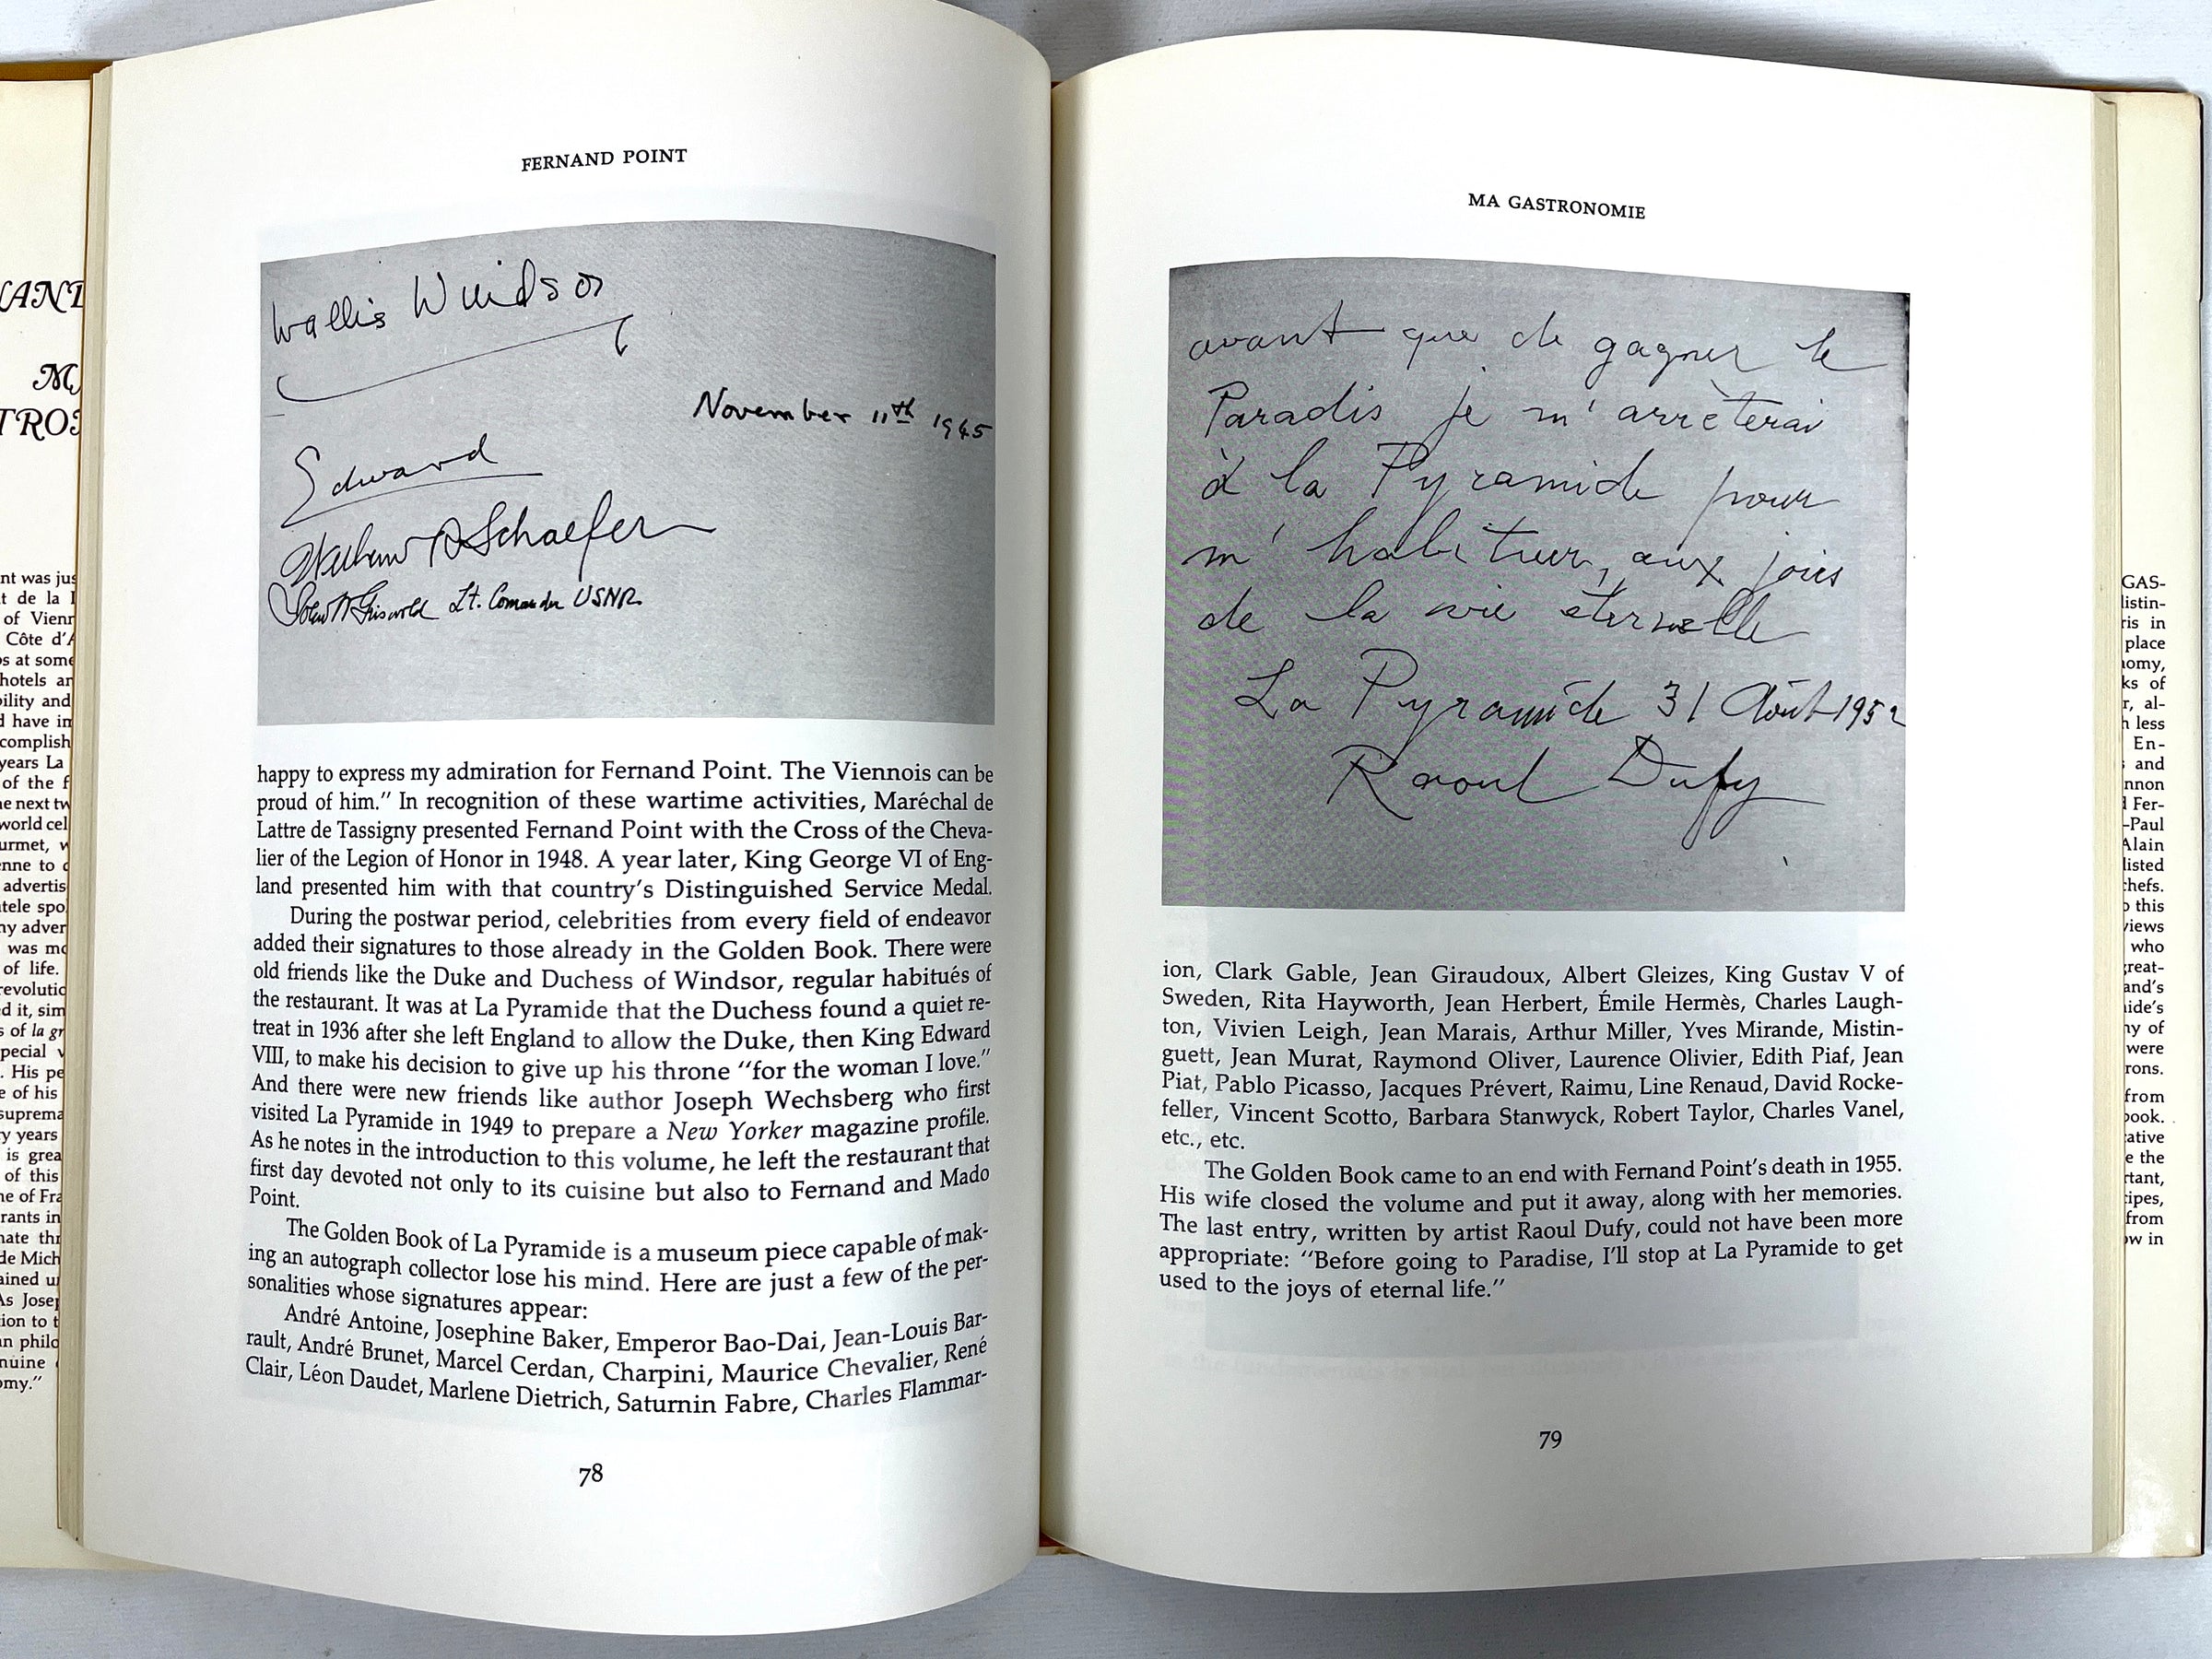 FERNAND POINT
Wallis Windsor
November 11th 1945
Edward
Schaefer
Griswold Lt. Comander USNR
happy to express my admiration for Fernand Point. The Viennois can be
proud of him." In recognition of these wartime activities, Maréchal de
Lattre de Tassigny presented Fernand Point with the Cross of the Cheva-
lier of the Legion of Honor in 1948. A year later, King George VI of Eng-
land presented him with that country's Distinguished Service Medal.
During the postwar period, celebrities from every field of endeavor
added their signatures to those already in the Golden Book. There were
old friends like the Duke and Duchess of Windsor, regular habitués of
the restaurant. It was at La Pyramide that the Duchess found a quiet re-
treat in 1936 after she left England to allow the Duke, then King Edward
VIII, to make his decision to give up his throne "for the woman I love."
And there were new friends like author Joseph Wechsberg who first
visited La Pyramide in 1949 to prepare a New Yorker magazine profile.
As he notes in the introduction to this volume, he left the restaurant that
first day devoted not only to its cuisine but also to Fernand and Mado
Point.
The Golden Book of La Pyramide is a museum piece capable of mak-
ing an autograph collector lose his mind. Here are just a few of the per-
sonalities whose signatures appear:
André Antoine, Josephine Baker, Emperor Bao-Dai, Jean-Louis Bar-
rault, André Brunet, Marcel Cerdan, Charpini, Maurice Chevalier, René
Clair, Léon Daudet, Marlene Dietrich, Saturnin Fabre, Charles Flammar-
78
MA GASTRONOMIE
avant que de gagner le
Paradis je m'arrèterai
à la Pyramide pour
m'habituer, aux joies
de la vie éternelle
La Pyramide 31 Août 1952
Raoul Dufy
ion, Clark Gable, Jean Giraudoux, Albert Gleizes, King Gustav V of
Sweden, Rita Hayworth, Jean Herbert, Émile Hermès, Charles Laugh-
ton, Vivien Leigh, Jean Marais, Arthur Miller, Yves Mirande, Mistin-
guett, Jean Murat, Raymond Oliver, Laurence Olivier, Edith Piaf, Jean
Piat, Pablo Picasso, Jacques Prévert, Raimu, Line Renaud, David Rocke-
feller, Vincent Scotto, Barbara Stanwyck, Robert Taylor, Charles Vanel,
etc., etc.
The Golden Book came to an end with Fernand Point's death in 1955.
His wife closed the volume and put it away, along with her memories.
The last entry, written by artist Raoul Dufy, could not have been more
appropriate: "Before going to Paradise, I'll stop at La Pyramide to get
used to the joys of eternal life."
79